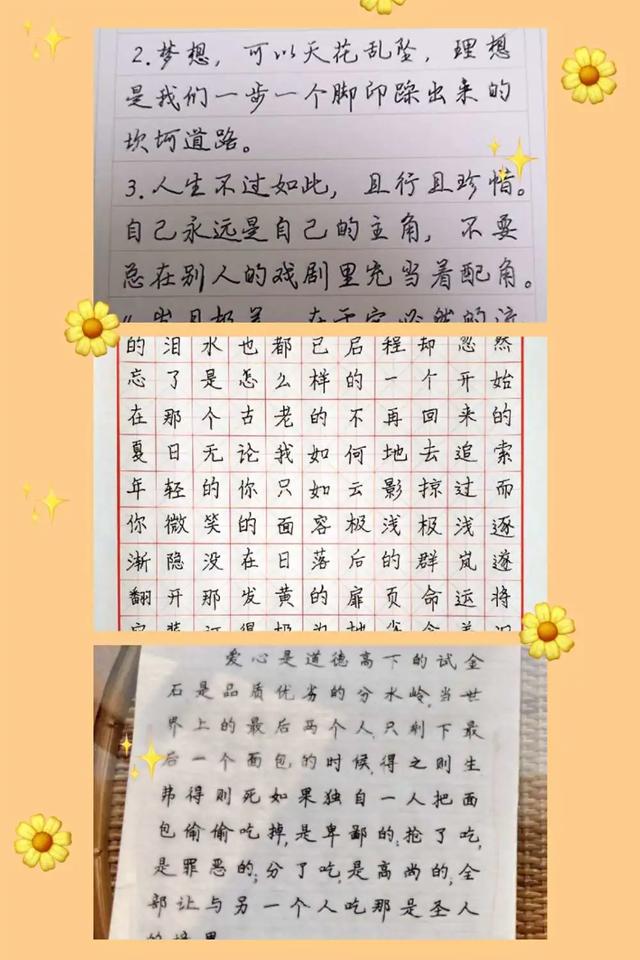 2.梦想，可以天花乱坠，理想
是我们一步一个脚印踩出来的
坎坷道路。
3.人生不过如此，且行且珍惜。
自己永远是自己的主角，不要
总在别人的戏剧里充当着配角。
岁月极美，在于它必然的流
的泪水也都已启程却忽然
忘了是怎么样的一个开始
在那个古老的不再回来的
夏日无论我如何地去追索
年轻的你只如云影掠过而
你微笑的面容极浅极浅逐
渐隐没在日落后的群岚遂
翻开那发黄的扉页命运将
爱心是道德高下的试金
石是品质优劣的分水岭,当世
界上的最后两个人,只剩下最
后一个面包的时候,得之则生
弗得则死如果独自一人把面
包偷偷吃掉,是卑鄙的;抢了吃,
是罪恶的;分了吃,是高尚的,全
部让与另一个人吃那是圣人